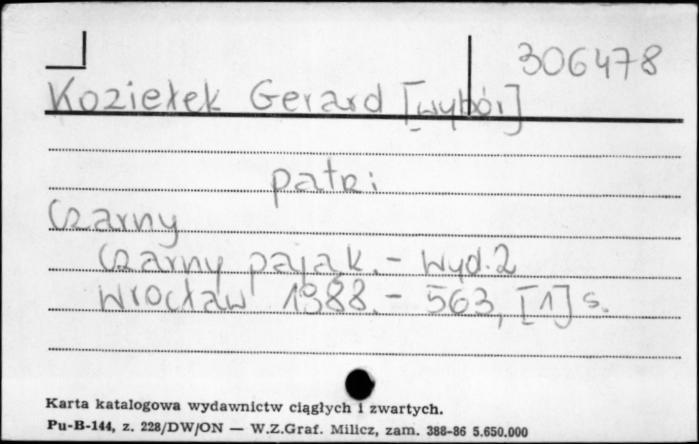 306478
Koziełek Gerard [wybór]
patrz:
Czarny
Czarny pająk. - Wyd. 2
Wrocław 1988. - 563, [1] s.
Karta katalogowa wydawnictw ciągłych i zwartych.
Pu-B-144, z. 228/DW/ON — W.Z.Graf. Milicz, zam. 388-86 5.650.000